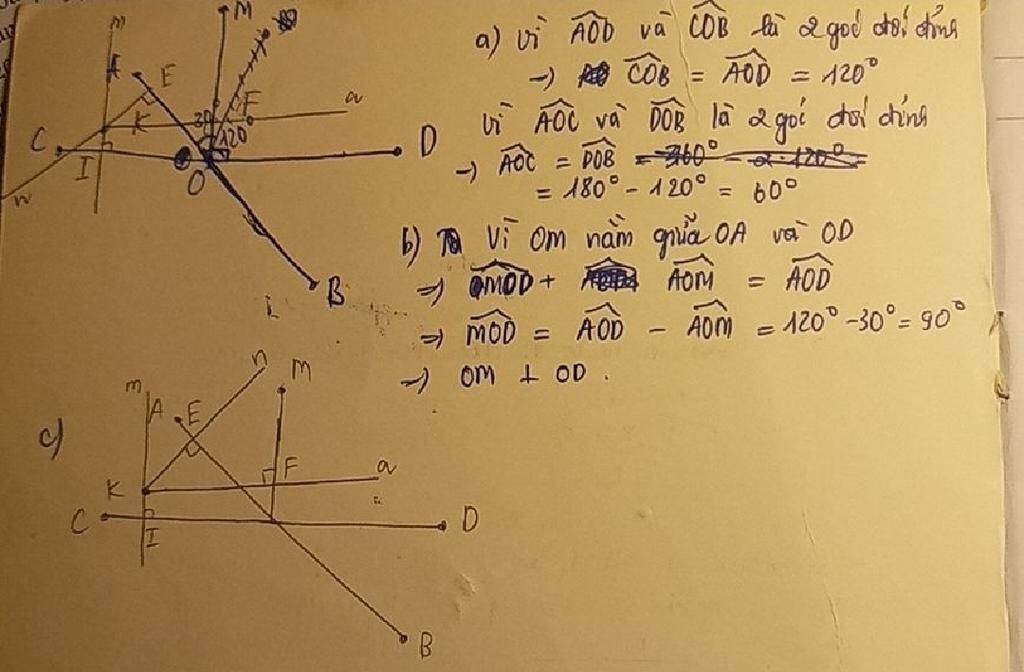 m
M
A
E
F
a
30
120°
K
C
I
D
O
n
B
a) Vì AOD và COB là 2 góc đối đỉnh
→ COB = AOD = 120°
Vì AOC và DOB là 2 góc đối đỉnh
→ AOC = DOB = 360° - 2.120°
= 180° - 120° = 60°
b) Vì OM nằm giữa OA và OD
⇒ MOD + AOM = AOD
⇒ MOD = AOD - AOM = 120° - 30° = 90°
→ OM ⊥ OD.
c)
n
M
m
A
E
F
a
K
C
I
D
B